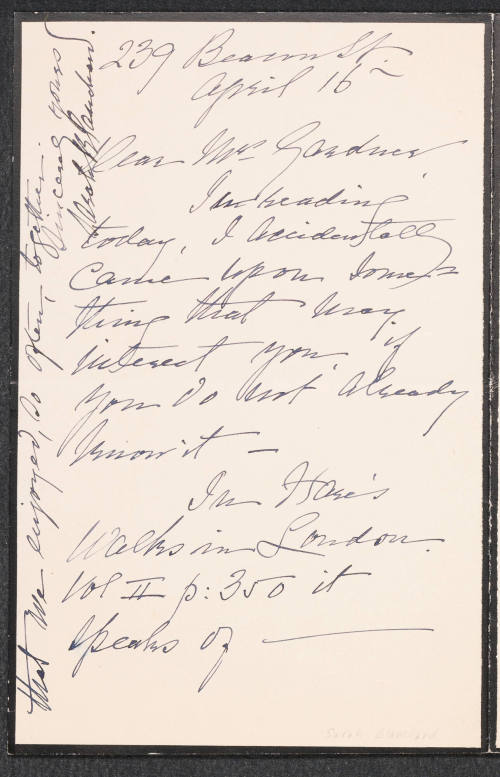 239 Beacon St.
April 16
Dear Mrs Gardner,
In reading
today, I accidentally
came upon some=
thing that may
interest you, if
you do not already
know it —
In Hare's
Walks in London.
Vol II p: 350 it
speaks of —
that we enjoyed, so often, together.
Sincerely yours
Sarah Blanchard